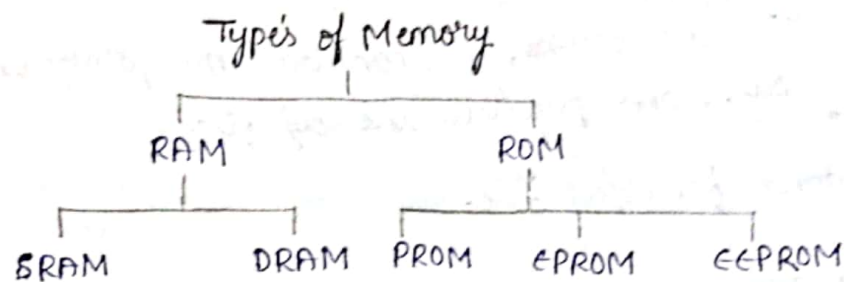 Type's of Memory
RAM ROM
SRAM DRAM PROM EPROM EEPROM